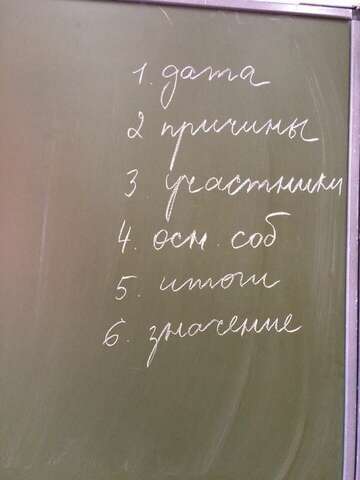 1. дата
2 причины
3. участники
4. осн. соб
5. итоги
6. значение